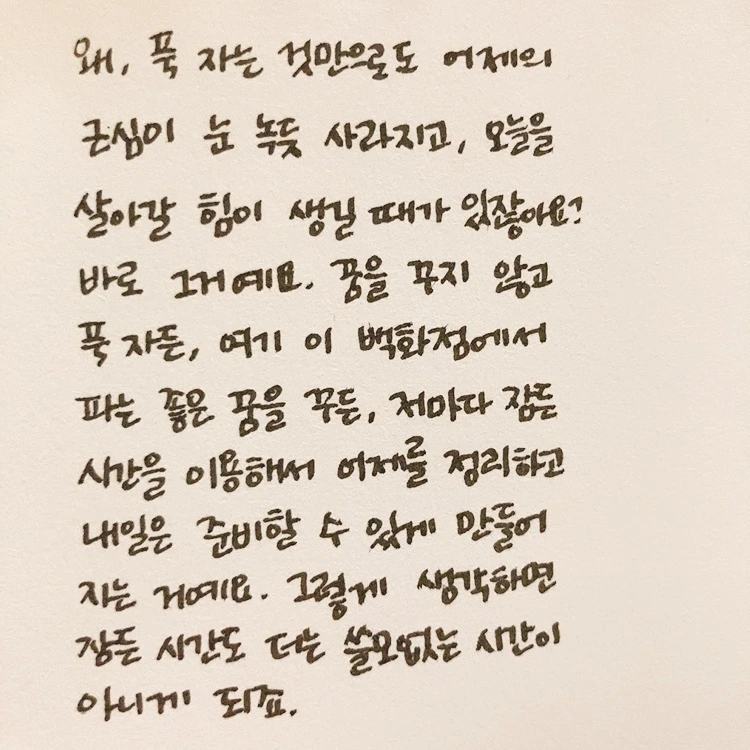 왜, 푹 자는 것만으로도 어제의
근심이 눈 녹듯 사라지고, 오늘을
살아갈 힘이 생길 때가 있잖아요?
바로 그거예요. 꿈을 꾸지 않고
푹 자든, 여기 이 백화점에서
파는 좋은 꿈을 꾸든, 저마다 잠든
시간을 이용해서 어제를 정리하고
내일은 준비할 수 있게 만들어
지는 거예요. 그렇게 생각하면
잠든 시간도 더는 쓸모없는 시간이
아니게 되죠.